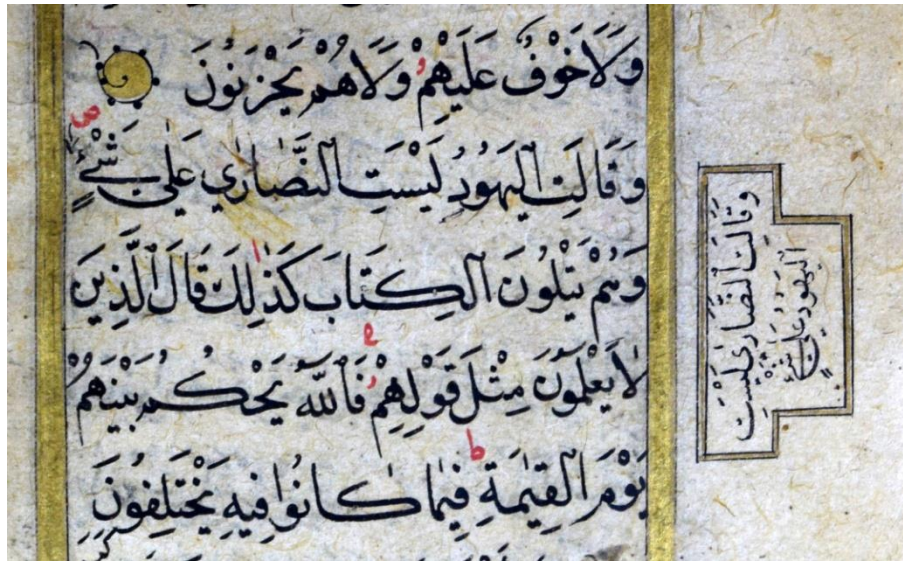 وَلَا خَوْفٌ عَلَيْهِمْ وَلَا هُمْ يَحْزَنُونَ
ص
وَقَالَتِ الْيَهُودُ لَيْسَتِ النَّصَارٰي عَلٰى شَيْءٍ
وَهُمْ يَتْلُونَ الْكِتَابَ كَذٰلِكَ قَالَ الَّذِينَ
لَا يَعْلَمُونَ مِثْلَ قَوْلِهِمْ فَاللّٰهُ يَحْكُمُ بَيْنَهُمْ
ط
يَوْمَ الْقِيٰمَةِ فِيمَا كَانُوا فِيهِ يَخْتَلِفُونَ
وَقَالَتِ النَّصَارٰى لَيْسَتِ
الْيَهُودُ عَلٰى شَيْءٍ